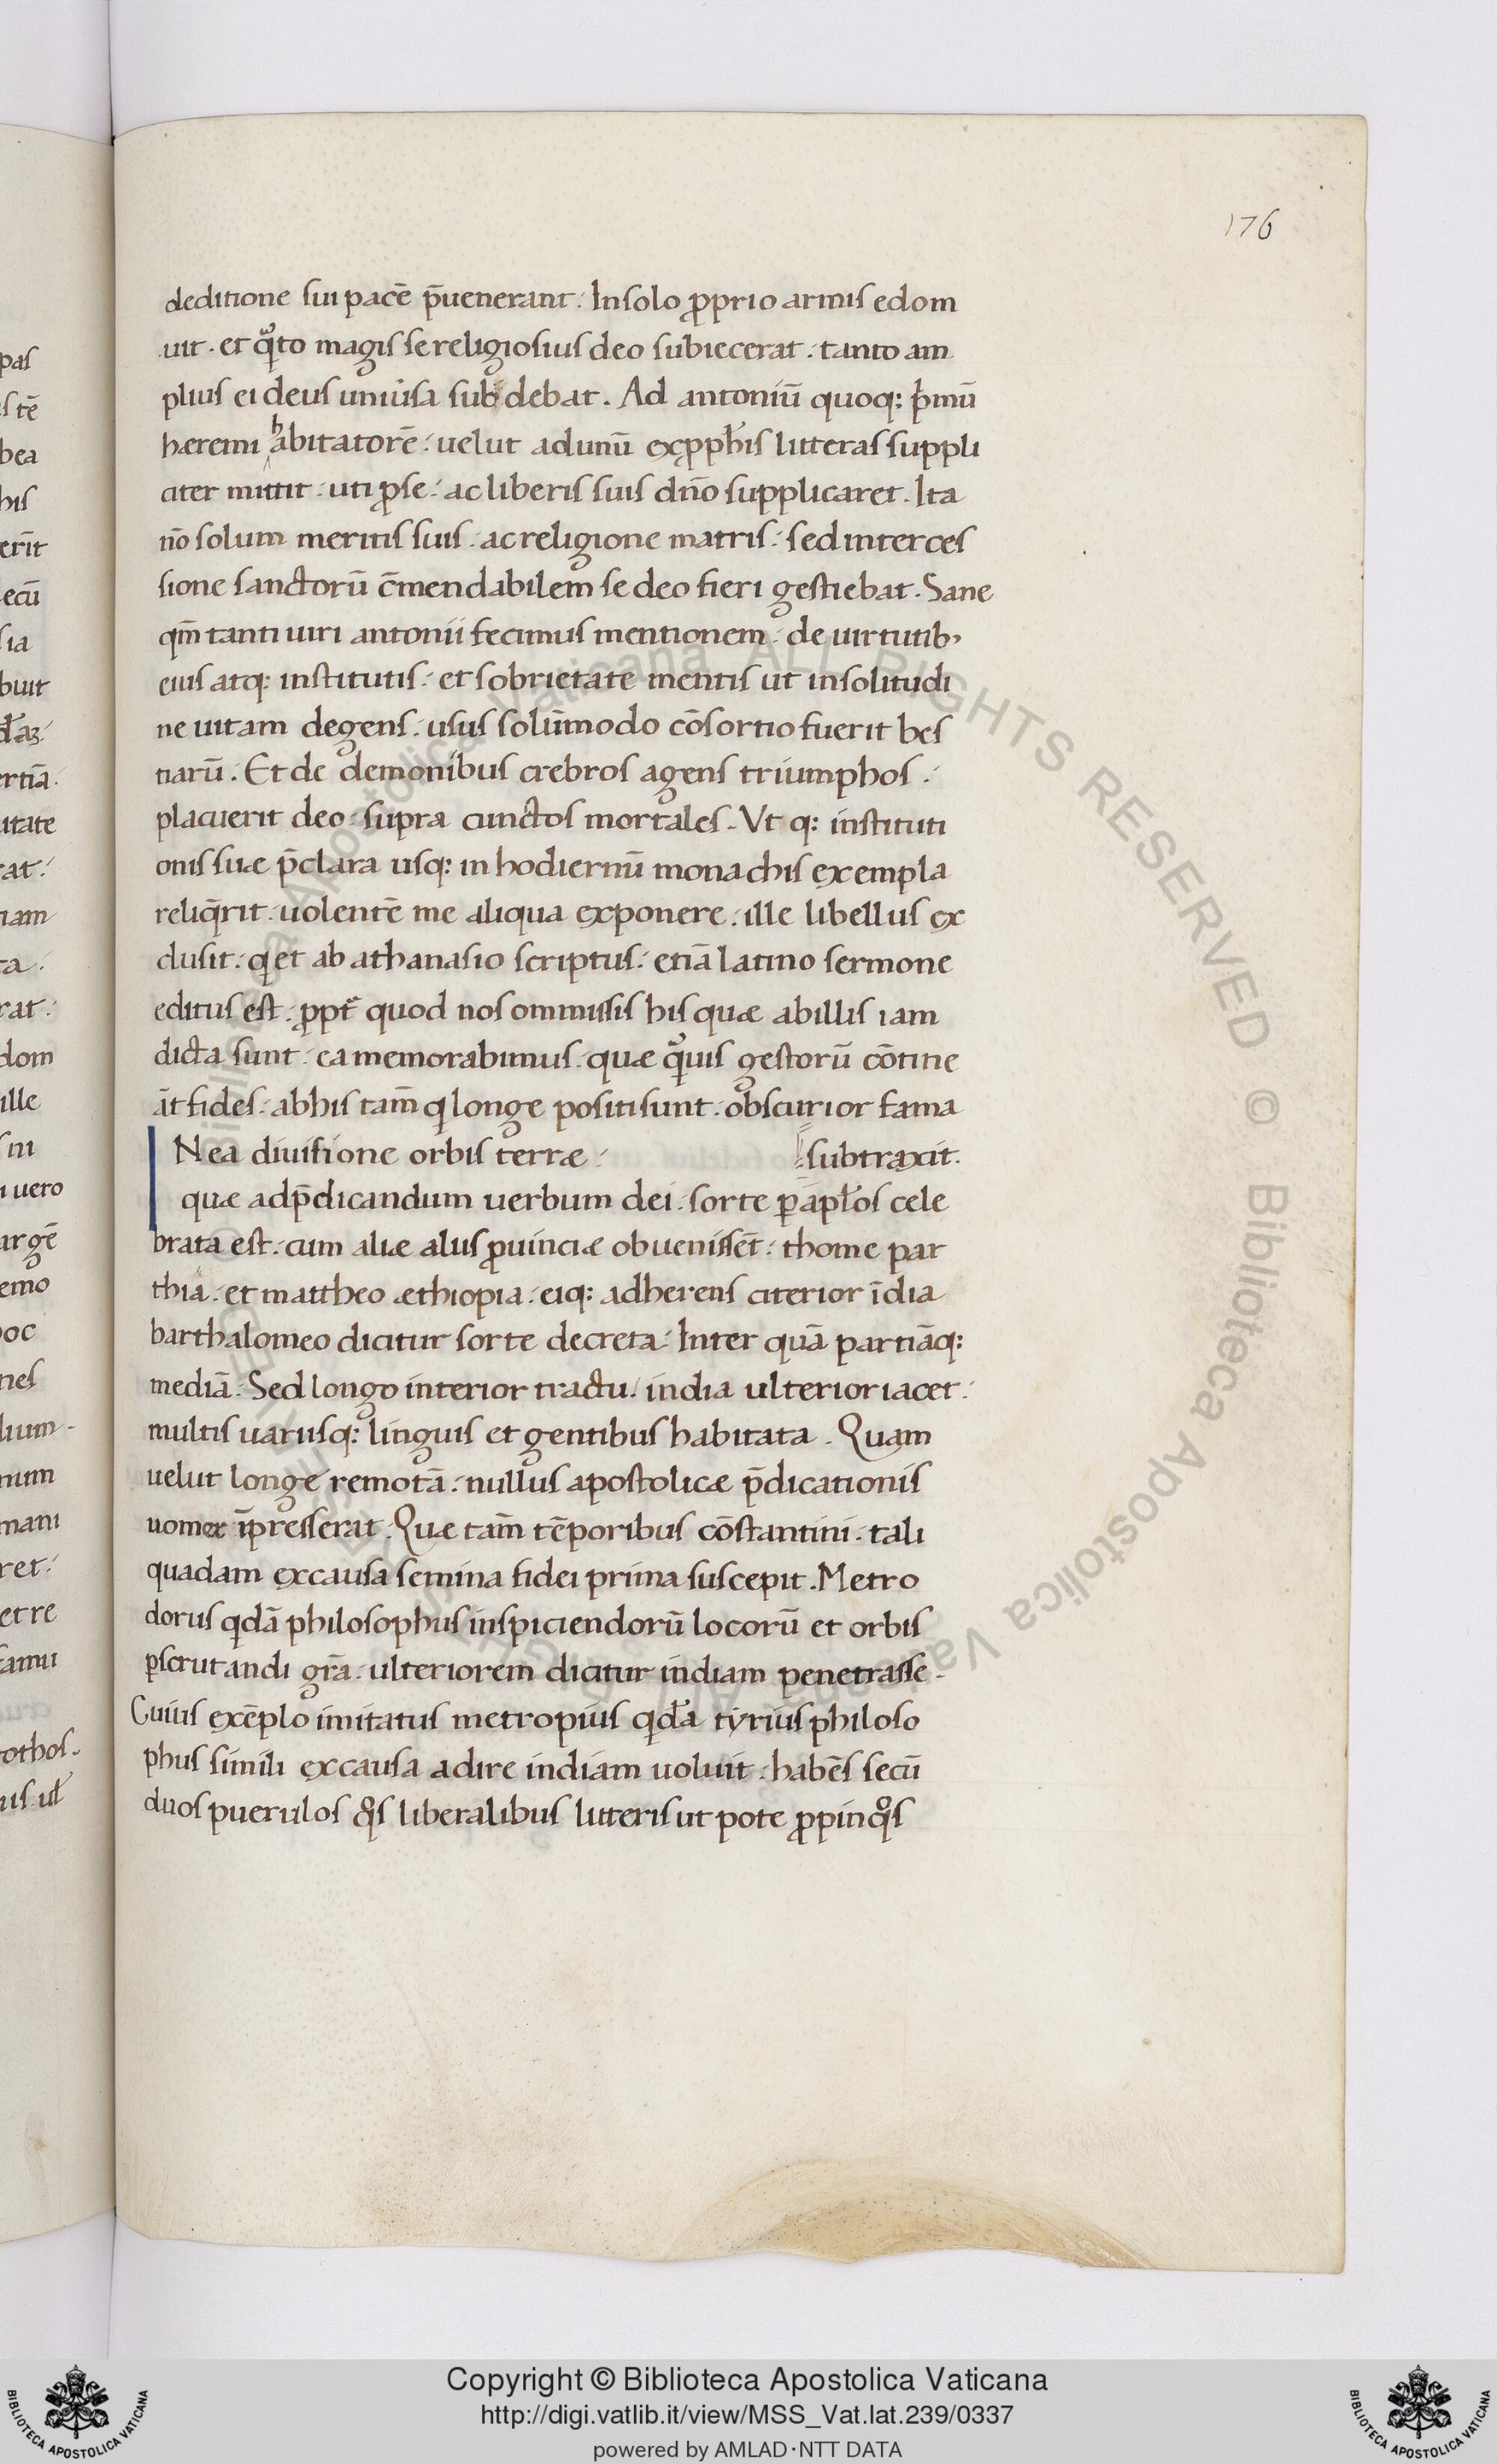 176
deditione sui pacē p̄uenerant. In solo ꝓprio armis edom
uit. et qͣ̄to magis se religiosius deo subiecerat. tanto am
plius ei deus uniu̾sa subdebat. Ad antoniū quoq: pͥmū
hæremi habitatorē. uelut ad unū ex ꝓph̄is litteras suppli
citer mittit. uti ꝓ se. ac liberis suis dn̄o supplicaret. Ita
nō solum meritis suis. ac religione matris. sed interces
sione sanctorū c̄mendabilem se deo fieri gestiebat. Sane
qm̄ tanti uiri antonii fecimus mentionem. de uirtutib,
eius atq: institutis. et sobrietate mentis ut in solitudi
ne uitam degens. usus solūmodo cōsortio fuerit bes
tiarū. Et de demonibus crebros agens triumphos.
placuerit deo. supra cunctos mortales. Vt q: instituti
onis suæ p̄clara usq: in hodiernū monachis exempla
reliq̄rit. uolentē me aliqua exponere. ille libellus ex
clusit. qͥ et ab athanasio scriptus. etiā latino sermone
editus est. ꝓpt̄ quod nos ommissis his quæ ab illis iam
dicta sunt. ea memorabimus. quæ qͣ̄uis gestorū cōtine
āt fides. ab his tam̄ qͥ longe positi sunt. obscurior fama
subtraxit.
N ea diuisione orbis terræ.
quæ ad p̄dicandum uerbum dei. sorte ꝑ apl̄os cele
brata est. cum aliæ aliis ꝓuinciæ obuenissēt. thome par
thia. et mattheo æthiopia. eiq: adherens citerior īdia
barthalomeo dicitur sorte decreta. Inter quā partiāq:
mediā. Sed longo interior tractu. india ulterior iacet.
multis uariisq: linguis et gentibus habitata. Quam
uelut longe remotā. nullus apostolicæ p̄dicationis
uomer īpresserat. Quæ tam̄ tēporibus cōstantini. tali
quadam ex causa semina fidei prima suscepit. Metro
dorus qͥdā philosophus inspiciendorū locorū et orbis
ꝑscrutandi gr̄a. ulteriorem dicitur indiam penetrasse.
Cuius exēplo imitatus metropius qͥda tyrius philoso
phus simili ex causa adire indiam uoluit. habēs secū
duos puerulos qͦs liberalibus litteris ut pote ꝓpinqͦs
Copyright © Biblioteca Apostolica Vaticana
http://digi.vatlib.it/view/MSS_Vat.lat.239/0337
powered by AMLAD·NTT DATA
BIBLIOTECA APOSTOLICA VATICANA
BIBLIOTECA APOSTOLICA VATICANA